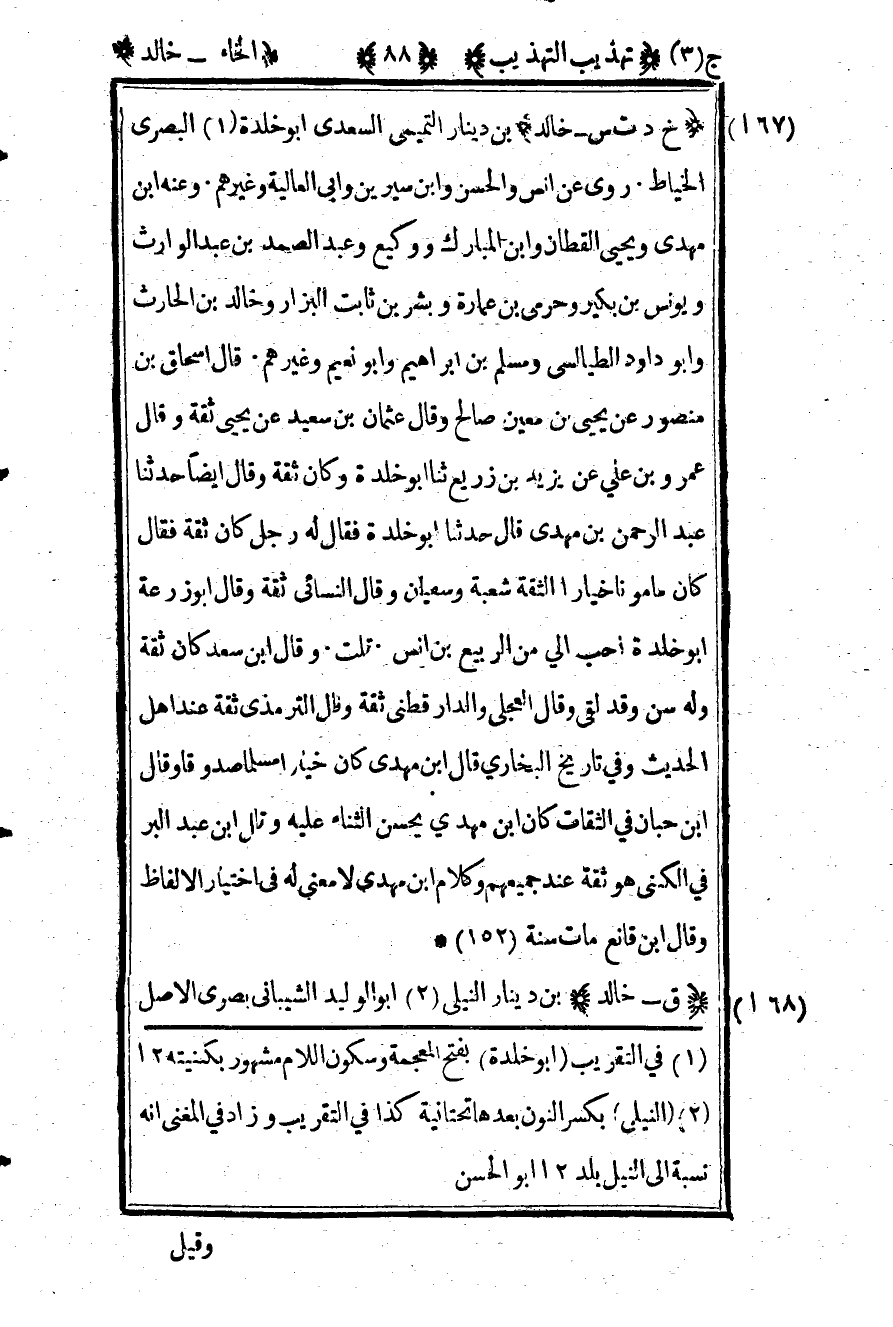 ج(٣) ﴿ تهذيب التهذيب ﴾ ﴿ ٨٨ ﴾ ﴿ الخاء ـ خالد ﴾
(١٦٧) ﴿ خ د ت س ـ خالد ﴾ بن دينار التميمى السعدى ابو خلدة (١) البصرى
الخياط · روى عن انس والحسن وابن سيرين وابى العالية وغيرهم · وعنه ابن
مهدى ويحيى القطان وابن المبارك ووكيع وعبد الصمد بن عبد الوارث
ويونس بن بكير وحرمى بن عمارة وبشر بن ثابت البزار وخالد بن الحارث
وابو داود الطيالسى ومسلم بن ابراهيم وابو نعيم وغيرهم · قال اسحاق بن
منصور عن يحيى بن معين صالح وقال عثمان بن سعيد عن يحيى ثقة وقال
عمرو بن علي عن يزيد بن زريع ثنا ابو خلدة وكان ثقة وقال ايضاً حدثنا
عبد الرحمن بن مهدى قال حدثنا ابو خلدة فقال له رجل كان ثقة فقال
كان مامونا خيارا الثقة شعبة وسفيان وقال النسائى ثقة وقال ابو زرعة
ابو خلدة احب الي من الربيع بن انس · قلت · وقال ابن سعد كان ثقة
وله سن وقد لقى وقال العجلى والدار قطنى ثقة وقال الترمذى ثقة عند اهل
الحديث وفي تاريخ البخاري قال ابن مهدى كان خيارا مسلما صدوقا وقال
ابن حبان في الثقات كان ابن مهدي يحسن الثناء عليه وقال ابن عبد البر
في الكنى هو ثقة عند جميعهم وكلام ابن مهدى لا معنى له فى اختيار الالفاظ
وقال ابن قانع مات سنة (١٥٢) *
(١٦٨) ﴿ ق ـ خالد ﴾ بن دينار النيلى (٢) ابو الوليد الشيبانى بصرى الاصل
(١) في التقريب (ابو خلدة) بفتح المعجمة وسكون اللام مشهور بكنيته ١٢
(٢) (النيلى) بكسر النون بعدها تحتانية كذا في التقريب وزاد في المغنى انه
نسبة الى النيل بلد ١٢ ابو الحسن
وقيل